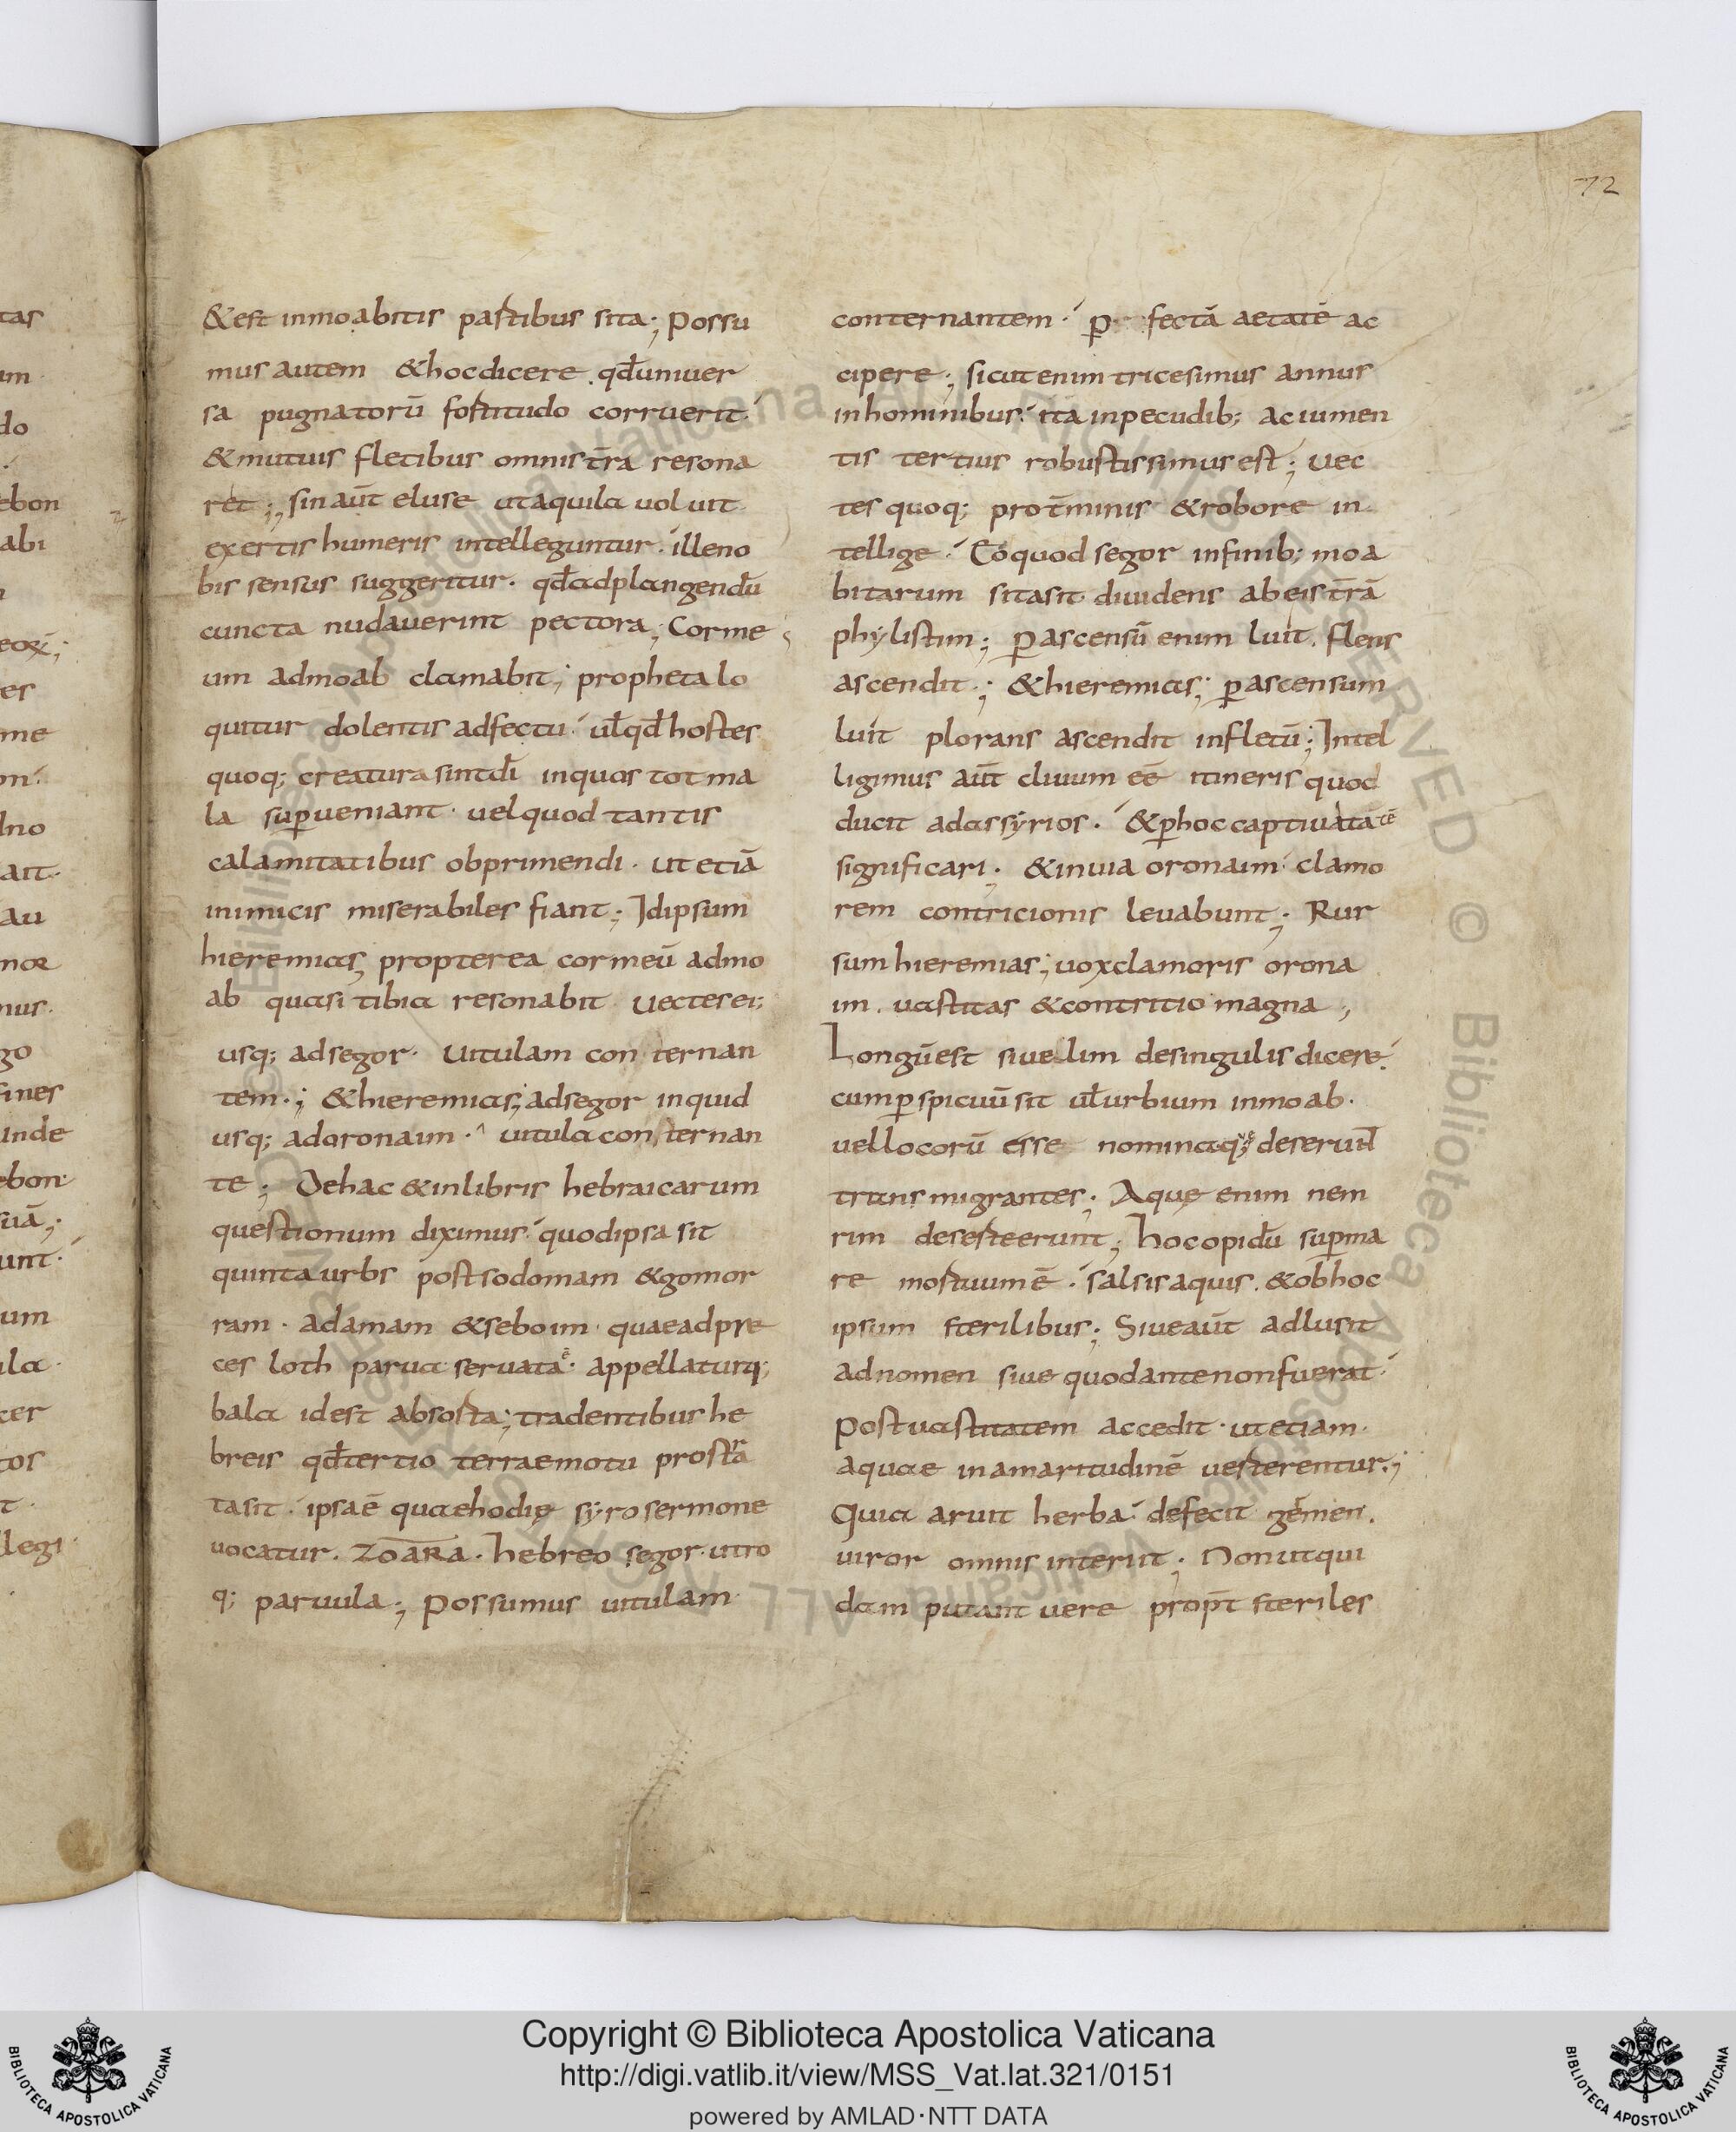 72
&est inmoabitis partibus sita; possu
mus autem &hocdicere. qđuniuer
sa pugnatorū fortitudo corruerit.
&mutuis fletibus omnis tr̄ra resona
ret; sin aūt eluse utaquila uoluit
exertis humeris intelleguntur. illeno
bis sensus suggeritur. qđadplangendū
cuncta nudauerint pectora; Corme
um admoab clamabit; propheta lo
quitur dolentis adfectu. ul̄qđhostes
quoq; creatura sintdī inquos tot ma
la sup̱ueniant. uelquod tantis
calamitatibus obprimendi. ut etiā
inimicis miserabiles fiant; Idipsum
hieremias; propterea cor meū admo
ab quasi tibia resonabit uectesei;
usq; adsegor. uitulam con ternan
tem.; &hieremias; adsegor inquid
usq; adoronaim. uitula consternan
te; Dehac &inlibris hebraicarum
questionum diximus. quodipsa sit
quinta urbs postsodomam &gomor
ram. adamam &seboim. quaeadpre
ces loth parua seruatae. appellaturq;
bala idest absorta; tradentibus he
breis qđtertio terraemotu prostra
tasit. ipsaē quaehodię syro sermone
uocatur. ZOARA. hebreo segor. utro
q; paruula; possumus uitulam
conternantem. p̱ fectā aetatē ac
cipere; sicutenim tricesimus annus
inhominibus. ita inpecudib; ac iumen
tis tertius robustissimus est; uec
tes quoq; prot̄minis &robore in
tellige. Eoquod segor infinib; moa
bitarum sitasit diuidens abeis tr̄rā
phylistim; p̱ascensū enim luit. flens
ascendit.; &hieremias; p̱ascensum
luit plorans ascendit infletū; Intel
ligimus aūt cliuum eē itineris quod
ducit adassyrios. &p̱hoc captiuitatē
significari; &inuia oronaim clamo
rem contricionis leuabunt; Rur
sum hieremias; uoxclamoris orona
im. uastitas &contritio magna;
Longūest siuelim desingulis dicere.
cump̱spicuū sit ul̄urbium inmoab.
uellocorū esse nominaq; deseruīt
transmigrantes; Aquę enim nem
rim deserteerunt; hocopidū sup̱ma
re mortuumē. salsis aquis. &obhoc
ipsum sterilibus; Siueaūt adlusit
adnomen siue quodantenonfuerat.
postuastitatem accedit. ut etiam
aquae inamaritudinē uerterentur;
Quia aruit herba. defecit gėmen.
uiror omnis interiit; Nonutqui
dam putant uere propt̄ steriles
Copyright © Biblioteca Apostolica Vaticana
http://digi.vatlib.it/view/MSS_Vat.lat.321/0151
powered by AMLAD·NTT DATA
BIBLIOTECA APOSTOLICA VATICANA
BIBLIOTECA APOSTOLICA VATICANA